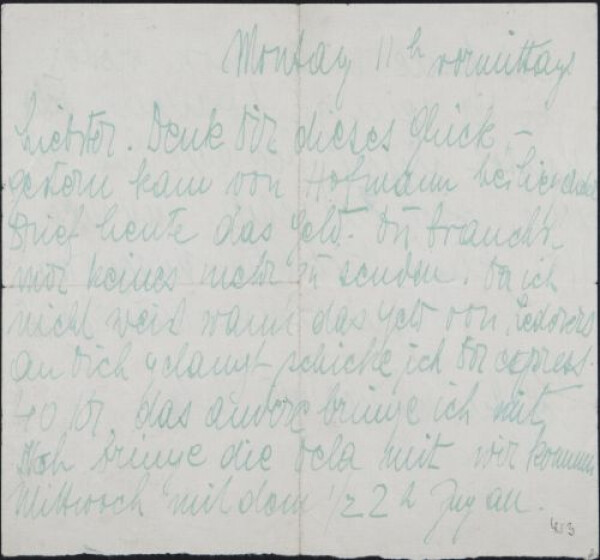 Montag 11 h vormittag
Liebster. Denk dir dieses Glück –
gestern kam von Hofmann beiliegender
Brief heute das Geld. Du brauchst
mir keines mehr zu senden. Da ich
nicht weis wann das Geld von Lederers
an dich gelangt schicke ich dir express
40 Kr. das andere bringe ich mit
Ich bringe die mit wir kommen
Mittwoch mit dem 1/2 2 h Zug an.
413